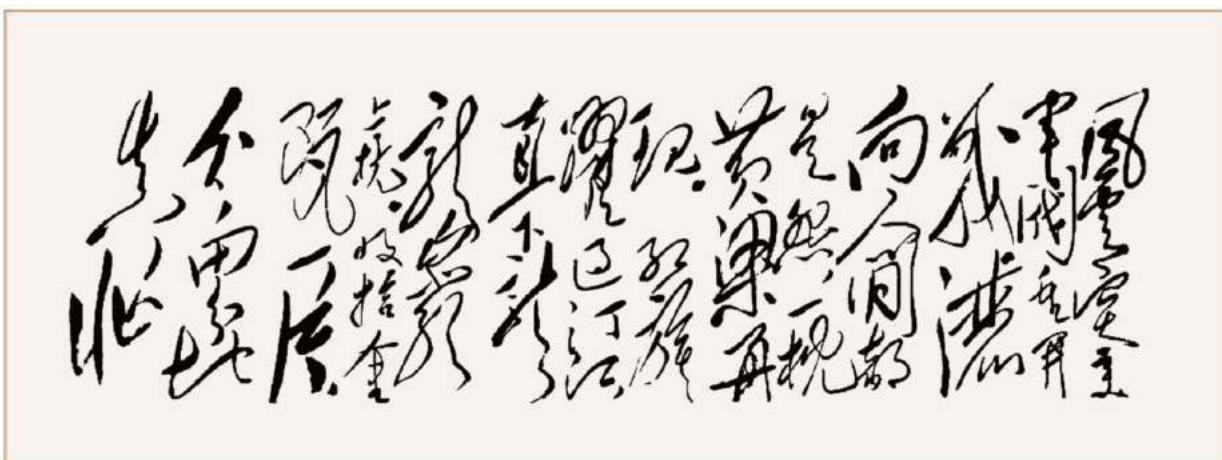 風雲突變
軍閥重開
戰灑
向人間都
是怨，一枕
黄粱再
現。紅旗
躍過汀江
直下
龍巖
上杭。收拾金
甌一片
分田分地
真忙